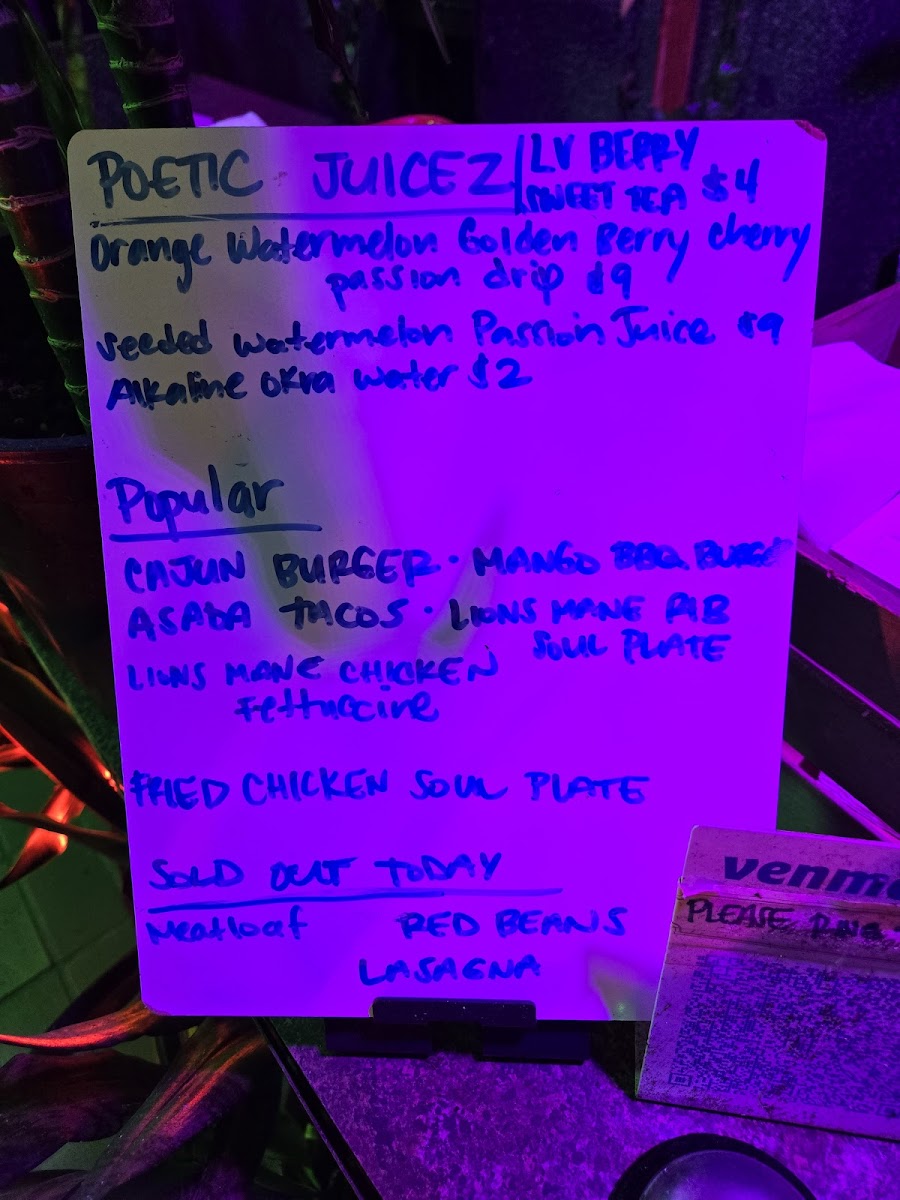 POETIC JUICEZ
LV BERRY
SWEET TEA $4
Orange Watermelon Golden Berry cherry
passion drip $9
seeded watermelon Passion Juice $9
Alkaline okra water $2
Popular
CAJUN BURGER · MANGO BBQ BURGE
ASADA TACOS · LIONS MANE RIB
SOUL PLATE
LIONS MANE CHICKEN
Fettuccine
FRIED CHICKEN SOUL PLATE
SOLD OUT TODAY
Meatloaf RED BEANS
LASAGNA
venm
PLEASE